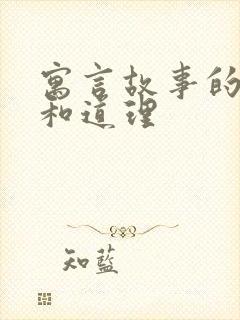 寓言故事的
和道理
知蓝